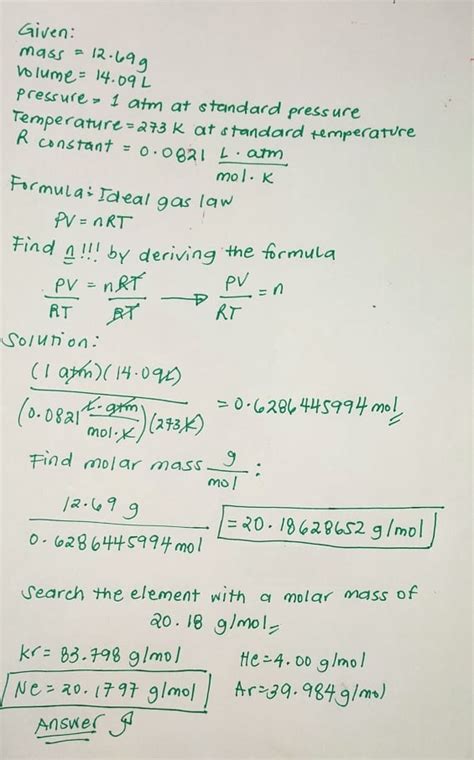 Given:
mass = 12.69g
Volume = 14.09 L
pressure = 1 atm at standard pressure
Temperature = 273 K at standard temperature
R constant = 0.0821 L · atm
mol · K
Formula: Ideal gas law
PV = nRT
Find n!!! by deriving the formula
PV = nRT → PV = n
RT RT RT
Solution:
(1 atm)(14.09L)
(0.0821 L·atm / mol·K)(273K) = 0.6286445994 mol
Find molar mass g :
mol
12.69 g
0.6286445994 mol = 20.18628652 g/mol
Search the element with a molar mass of
20.18 g/mol
Kr = 83.798 g/mol He = 4.00 g/mol
Ne = 20.1797 g/mol Ar = 39.984 g/mol
Answer